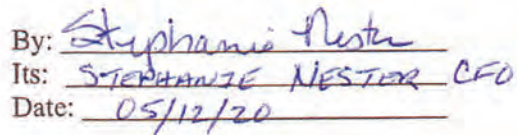 By: Stephanie Nester
Its: STEPHANIE NESTER CFO
Date: 05/12/20